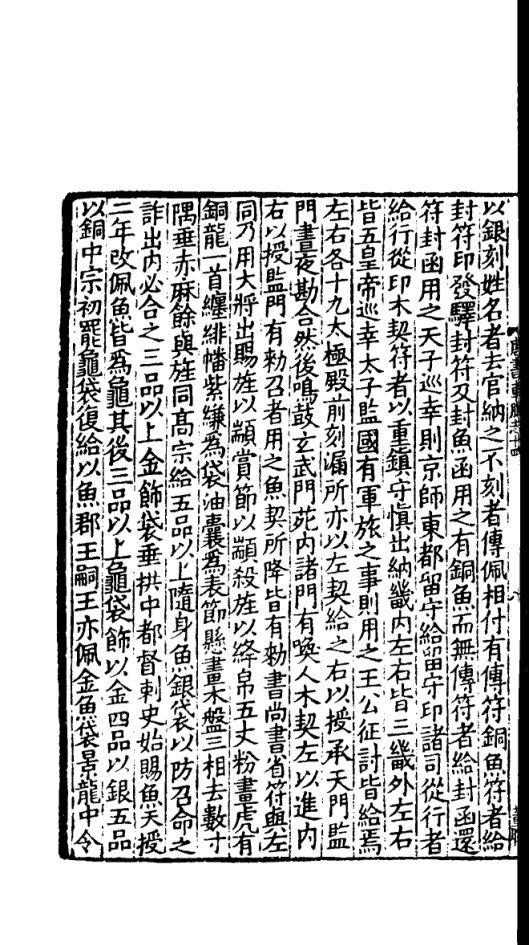 以銀刻姓名者去官納之不刻者傳佩相付有傳符銅魚符者給
封符印發驛封符及封魚函用之有銅魚而無傳符者給封函還
符封函用之天子巡幸則京師東都留守給留守印諸司從行者
給行從印木契符者以重鎮守慎出納畿内左右皆三畿外左右
皆五皇帝巡幸太子監國有軍旅之事則用之王公征討皆給焉
左右各十九太極殿前刻漏所亦以左契給之右以授承天門監
門晝夜勘合然後鳴鼓玄武門苑内諸門有喚人木契左以進内
右以授監門有勑召者用之魚契所降皆有勑書尚書省符與左
同乃用大將出賜旌以顓賞節以顓殺旌以絳帛五丈粉畫虎有
銅龍一首纏緋幡紫縑爲袋油囊爲表節懸畫木盤三相去數寸
隅垂赤麻餘與旌同高宗給五品以上隨身魚銀袋以防召命之
詐出内必合之三品以上金飾袋垂拱中都督刺史始賜魚天授
二年改佩魚皆爲龜其後三品以上龜袋飾以金四品以銀五品
以銅中宗初罷龜袋復給以魚郡王嗣王亦佩金魚袋景龍中令